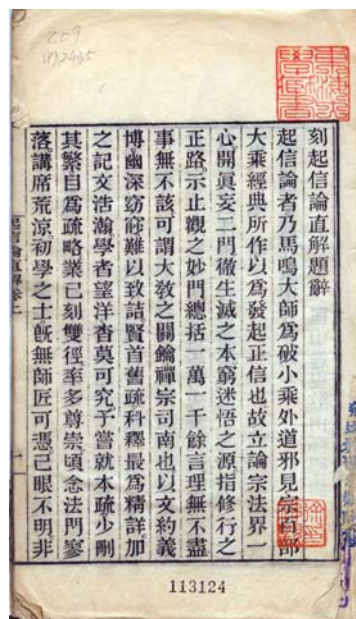 刻起信論直解題辭
起信論者乃馬鳴大師爲破小乘外道邪見宗百部
大乘經典所作以爲發起正信也故立論宗法界一
心開眞妄二門徹生滅之本窮迷悟之源指修行之
正路示止觀之妙門總括一萬一千餘言理無不盡
事無不該可謂大教之關鑰禪宗司南也以文約義
博幽深窈窱難以致詰賢首舊疏科釋最爲精詳加
之記文浩瀚學者望洋杳莫可究予嘗就本疏少刪
其繁自爲疏略業已刻雙徑率多尊崇頃念法門寥
落講席荒涼初學之士既無師匠可憑己眼不明非
起信論直解卷上
一
113124